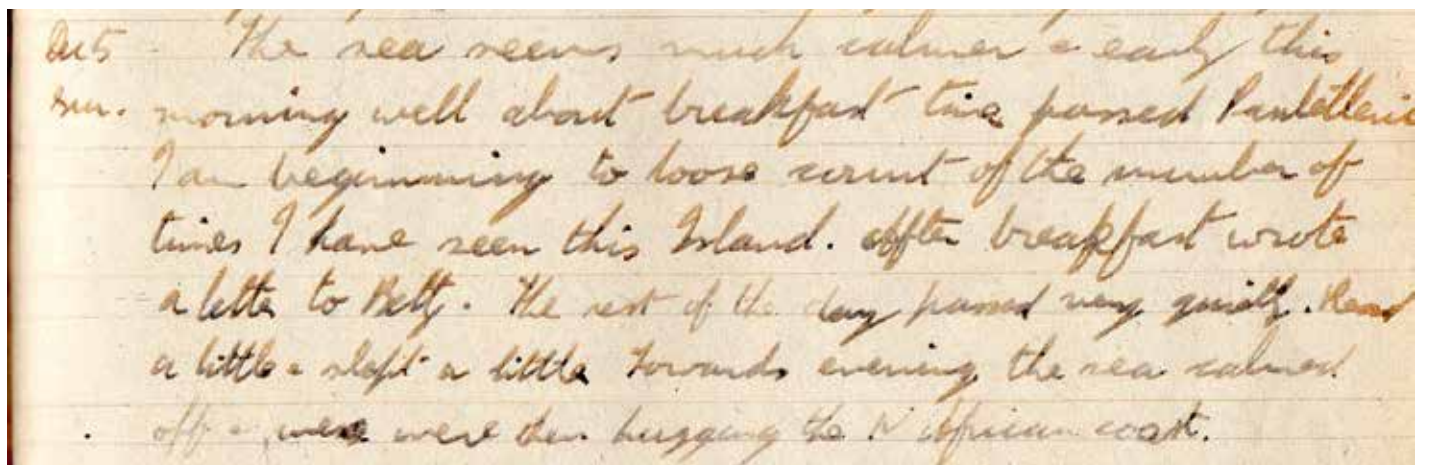 Dec 5 - The sea seems much calmer & early this
Sun. morning well about breakfast time passed Pantelleria
I am beginning to loose count of the number of
times I have seen this Island. After breakfast wrote
a letter to Betty. The rest of the day passed very quietly. Read
a little & slept a little Towards evening the sea calmed
off & were were then hugging the N African coast.